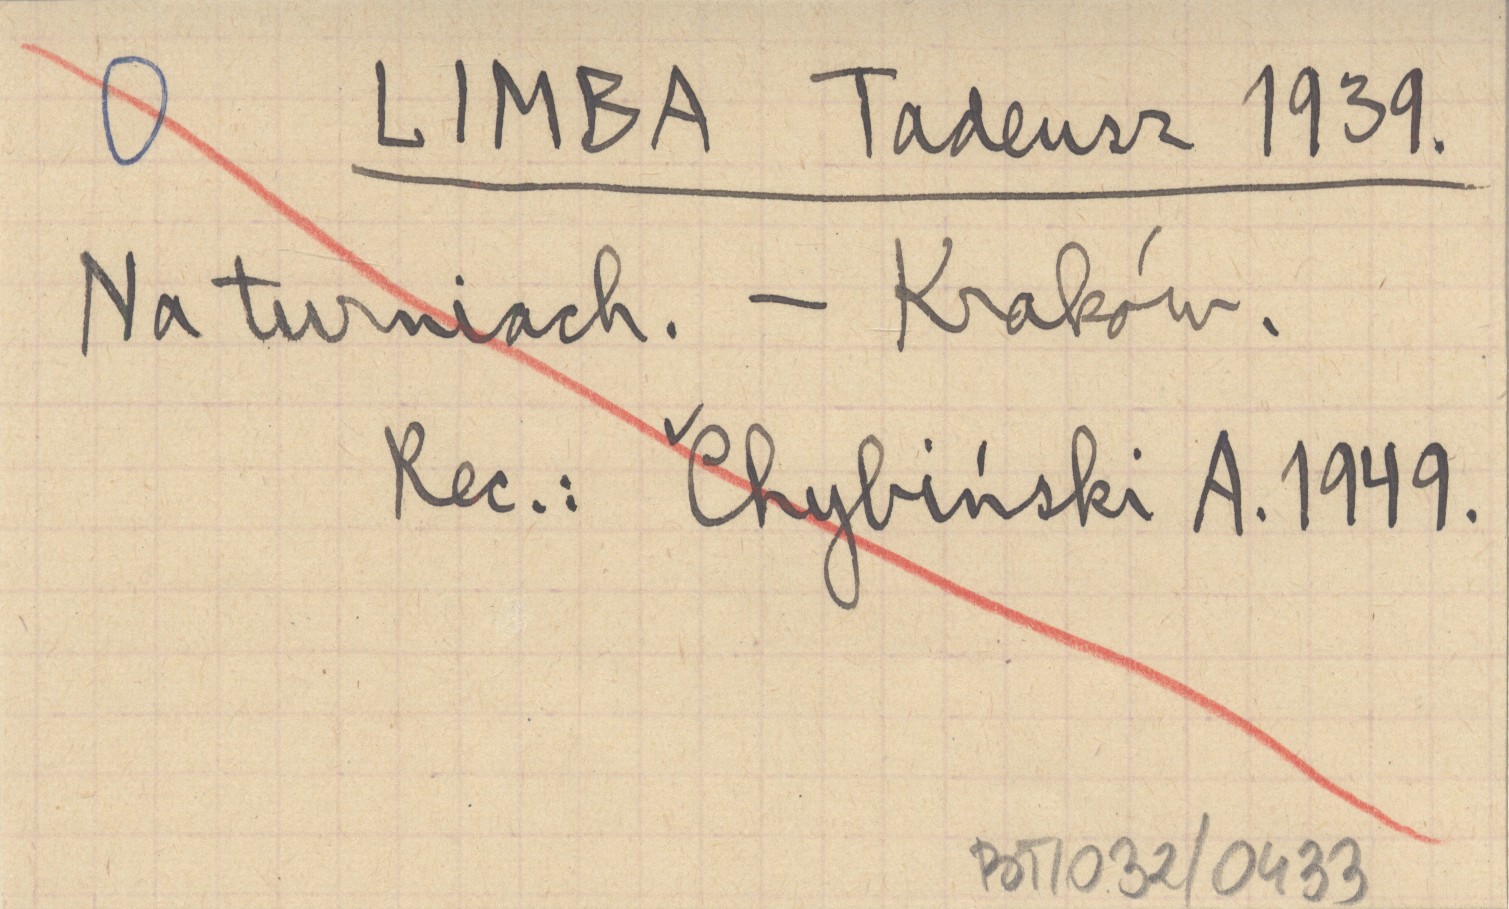 O LIMBA Tadeusz 1939.
Na turniach. – Kraków.
Rec.: Chybiński A. 1949.
BJT/032/0433